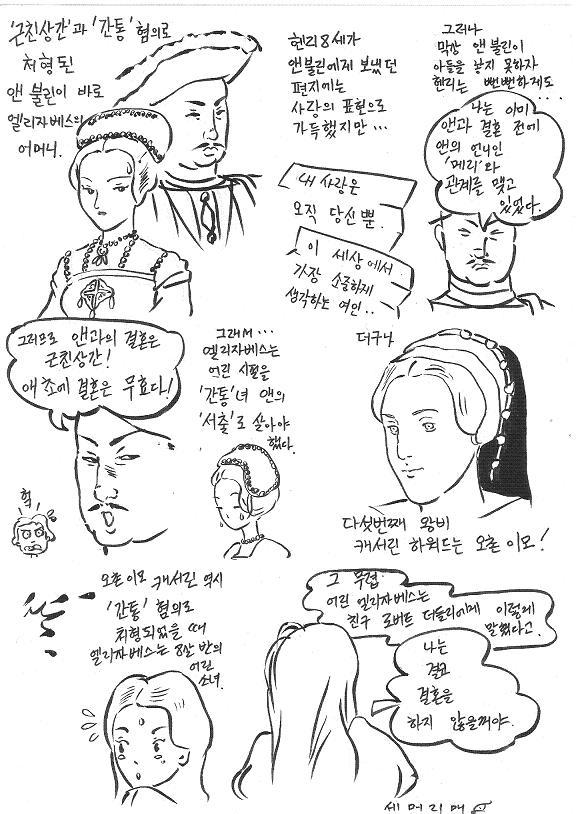 '근친상간'과 '간통' 혐의로
처형된
앤 불린이 바로
엘리자베스의
어머니.
헨리 8세가
앤불린에게 보냈던
편지에는
사랑의 표현으로
가득했지만 …
내 사랑은
오직 당신뿐.
이 세상에서
가장 소중하게
생각하는 여인..
그러나
막상 앤 불린이
아들을 낳지 못하자
헨리는 뻔뻔하게도
....
나는 이미
앤과 결혼 전에
앤의 언니인
'메리'와
관계를 맺고
있었다.
그러므로 앤과의 결혼은
근친상간!
애초에 결혼은 무효다!
헉
그래서 …
엘리자베스는
어린 시절을
'간통'녀 앤의
'서출'로 살아야
했다.
더구나
다섯번째 왕비
캐서린 하워드는 오촌 이모!
오촌 이모 캐서린 역시
'간통' 혐의로
처형되었을 때
엘리자베스는 8살 반의
어린
소녀.
그 무렵
어린 엘리자베스는
친구 로버트 더들리에게 이렇게
말했다고.
나는
결코
결혼을
하지 않을꺼야.
세 머리 매